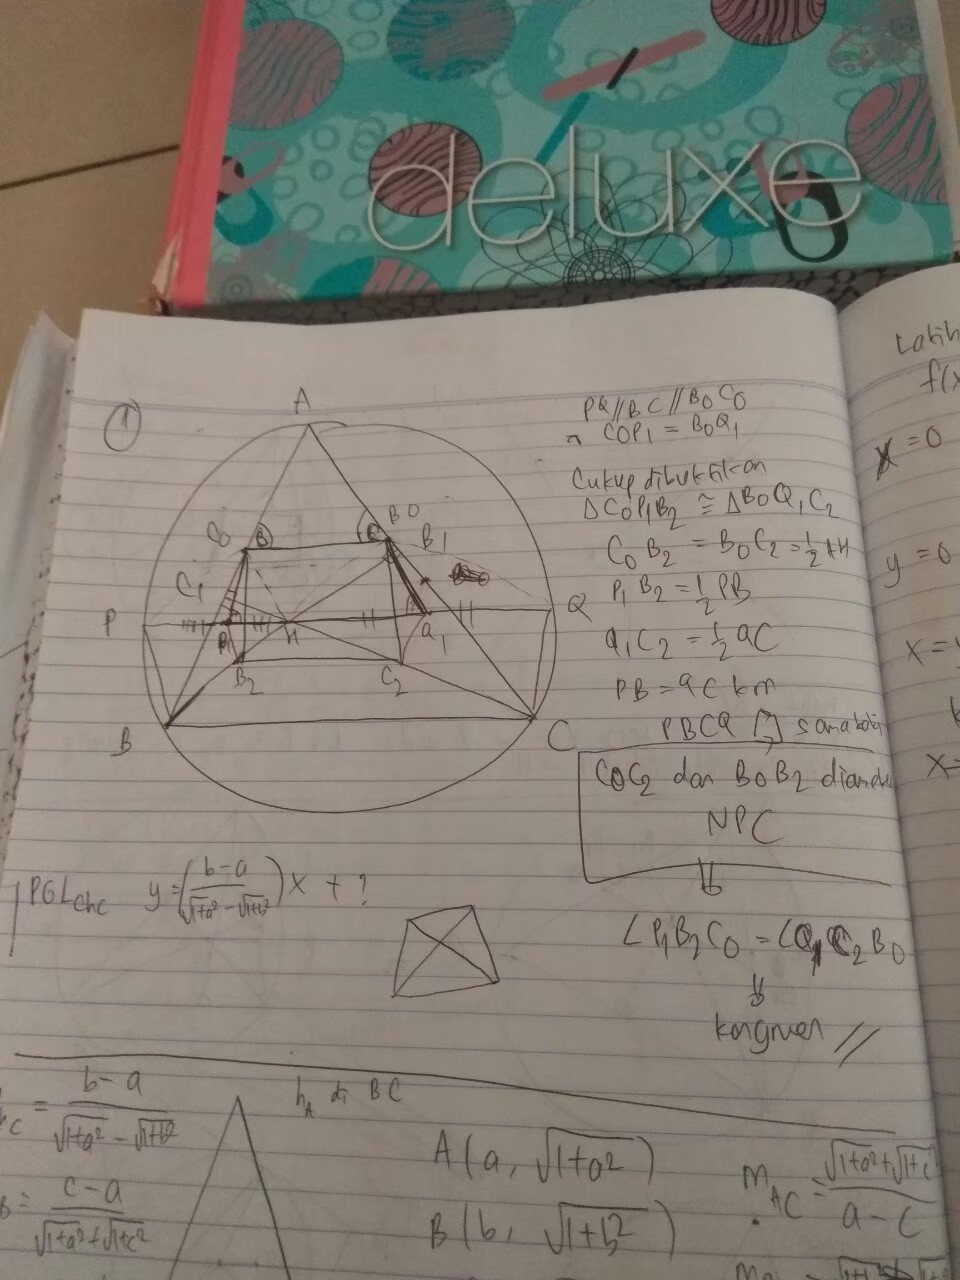 deluxe
①
A
C₀
B₀
B₁
C₁
P
H
Q₁
Q
B₂
C₂
B
C
PQ // BC // B₀C₀
C₀P₁ = B₀Q₁
Cukup dibuktikan
ΔC₀P₁B₂ ≅ ΔB₀Q₁C₂
C₀B₂ = B₀C₂ = ½AH
P₁B₂ = ½PB
Q₁C₂ = ½QC
PB = QC krn
PBCQ
C₀C₂ dan B₀B₂
NPC
⇓
∠P₁B₂C₀ = ∠Q₁C₂B₀
⇓
kongruen //
PGL_{BC} y = (b-a / √1+a² - √1+b²) x + ?
= b-a / √1+a² - √1+b²
= c-a / √1+a² + √1+c²
h_A di BC
A(a, √1+a²)
B(b, √1+b²)
m_{AC} = √1+a² + √1+c² / a-c
f(x
x = 0
y = 0
x =
x =